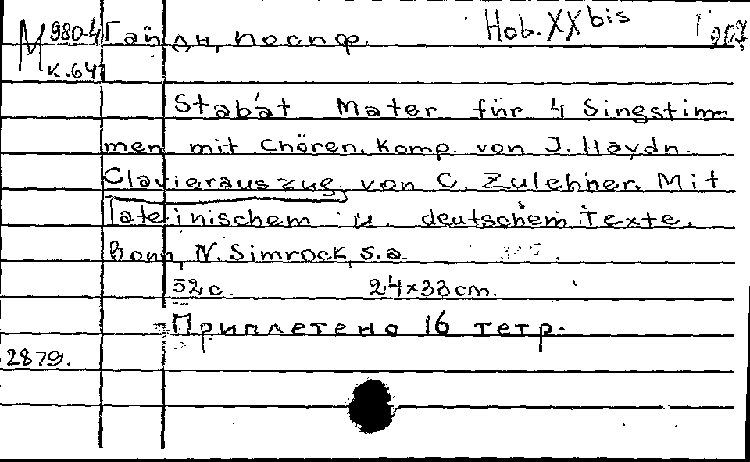 М 980-4 Гайдн, Иосиф. Hob. XX bis
к.641
Stabat Mater für 4 Singstim-
men mit Chören. Komp. von J. Haydn.
Clavierauszug von C. Zulehner. Mit
lateinischem u. deutschem Texte.
Bonn, N. Simrock, s.a.
52 с. 24×33 cm.
Приплетено 16 тетр.
2879.